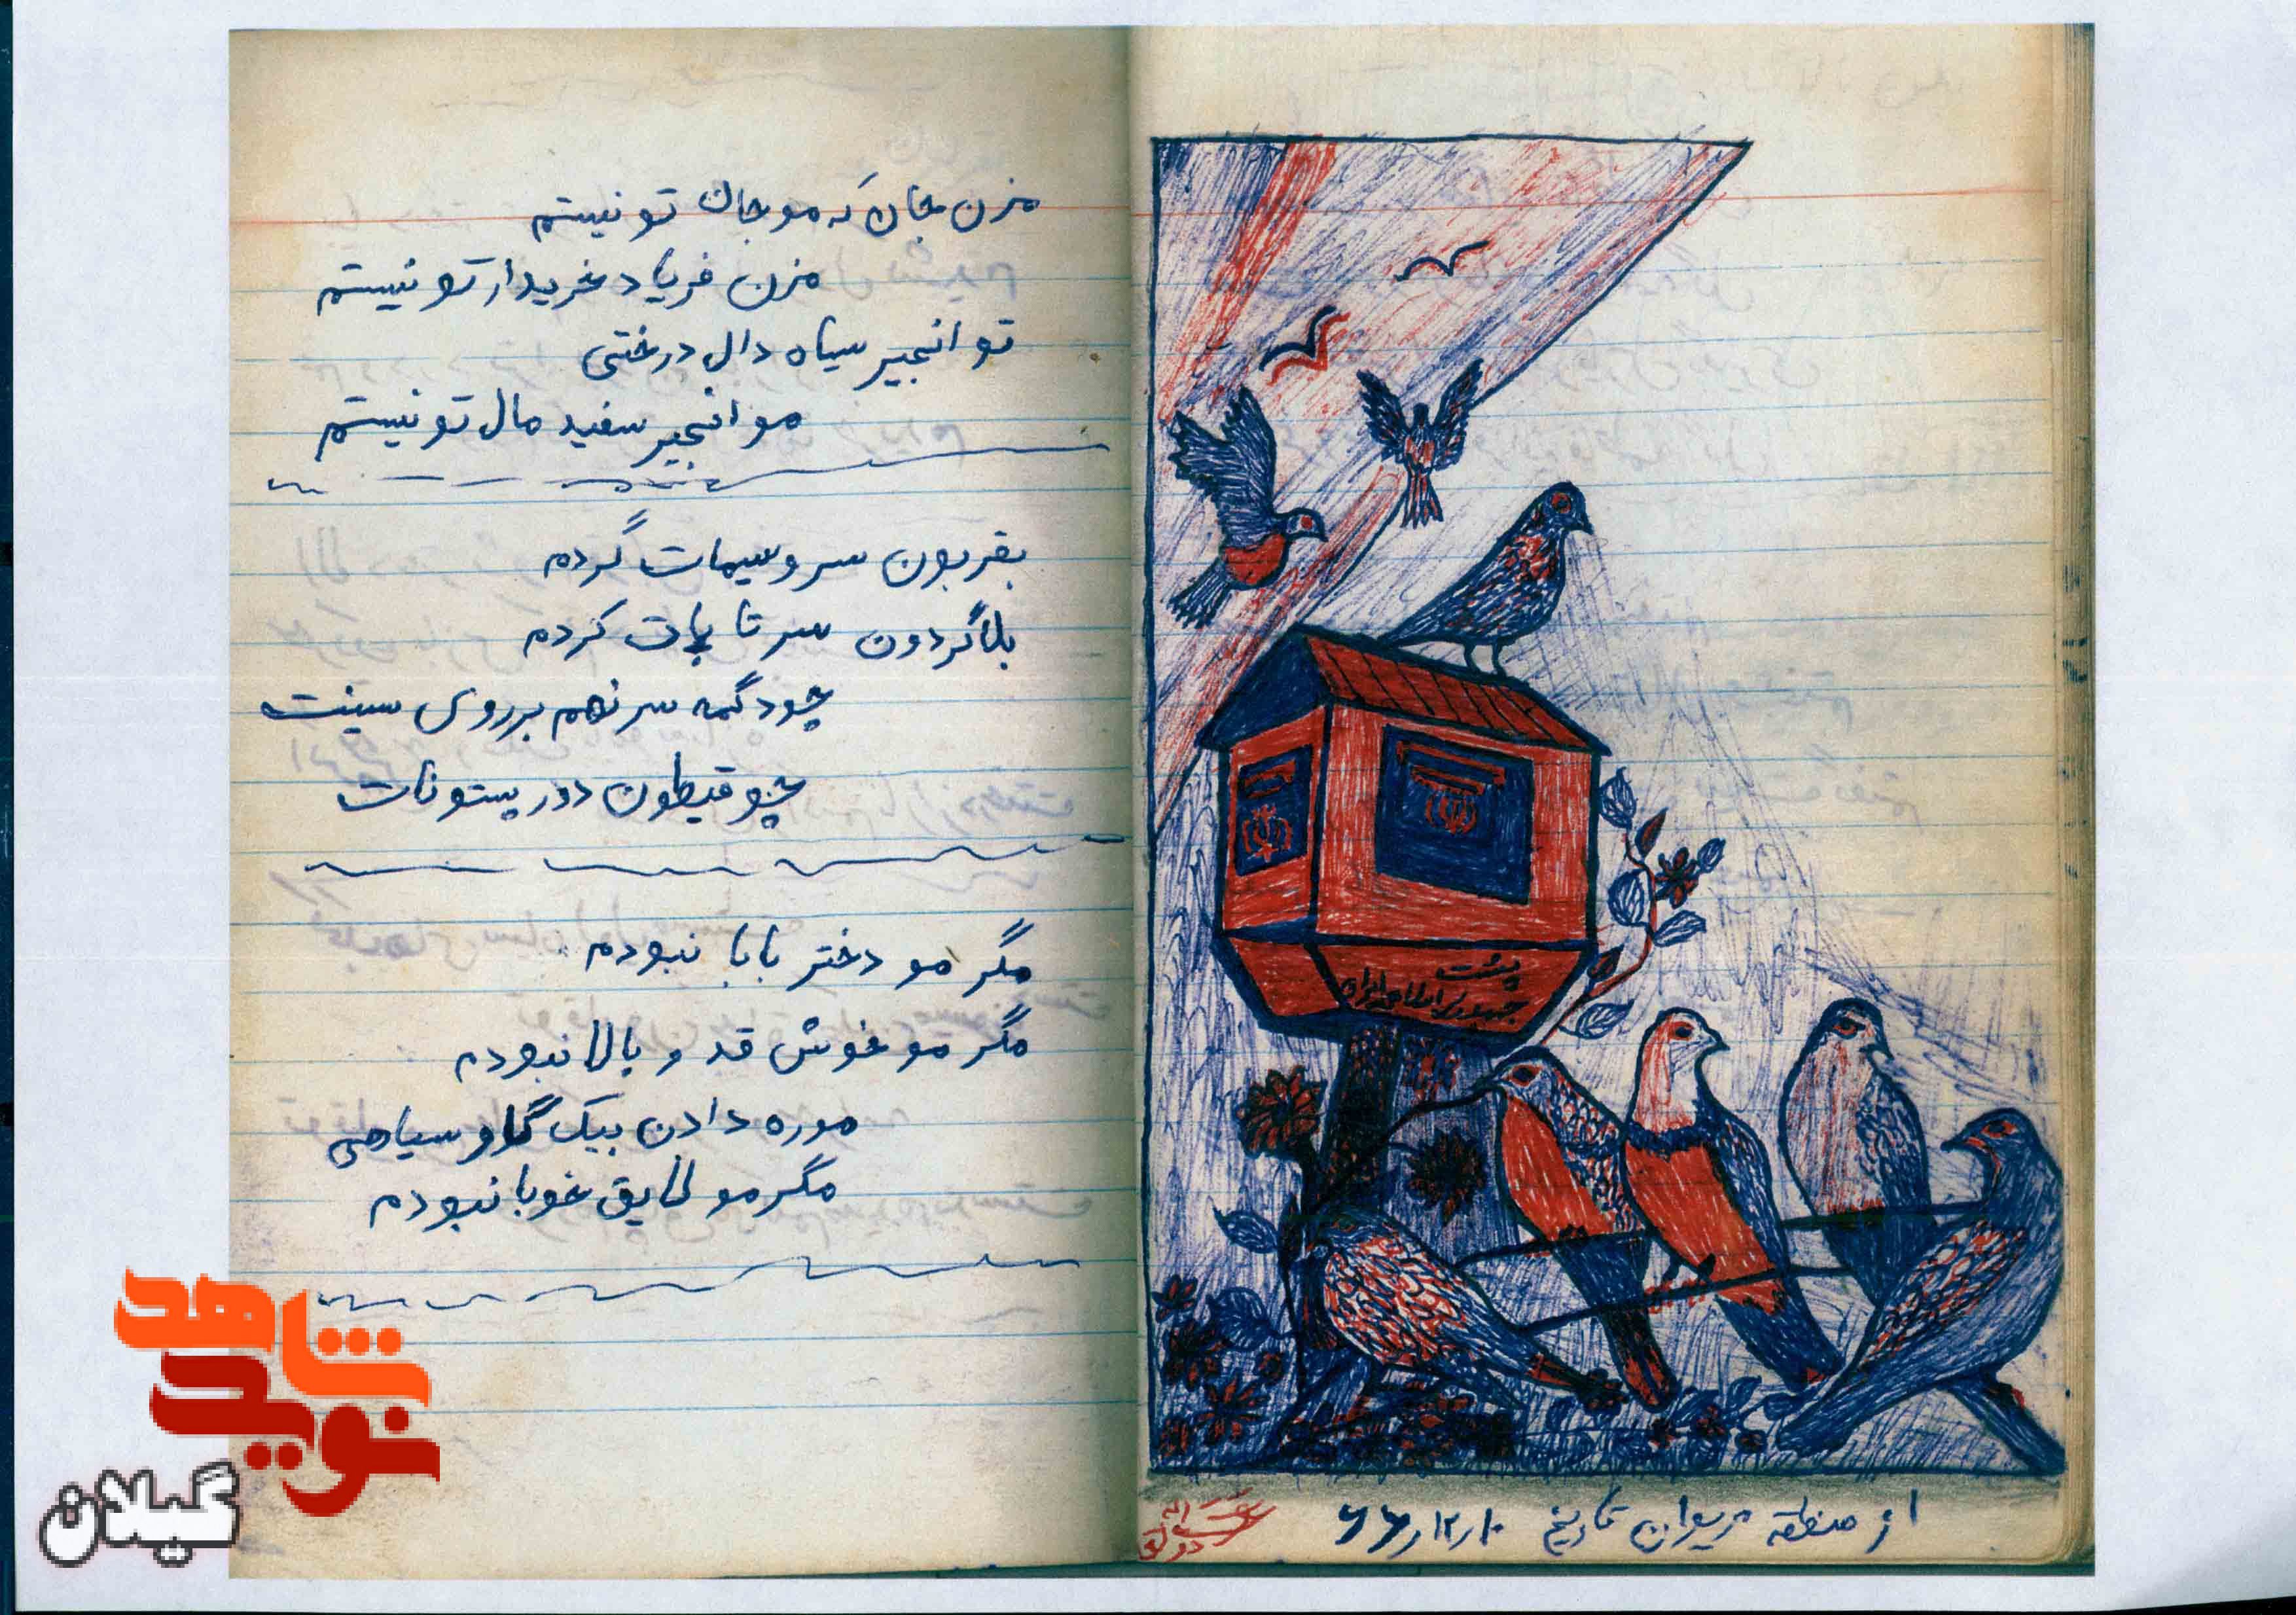 مزن جان که مو جان تو نیستم
مزن فریاد خریدار تو نیستم
تو انجیر سیاه دال درختی
مو انجیر سفید مال تو نیستم
بقربون سر و سیمات گردم
بلاگردون سر تا پات گردم
چو دگمه سر نهم بر روی سینت
چو قیطون دور پستونات
مگر مو دختر بابا نبودم
مگر مو خوش قد و بالا نبودم
موره دادن بیک گاو سیاهی
مگر مو لایق خوبا نبودم
پست
جمهوری اسلامی ایران
از منطقه مریوان تاریخ ۱۰ر۱۲ر۶۶
شاهد
نوید
گیلان